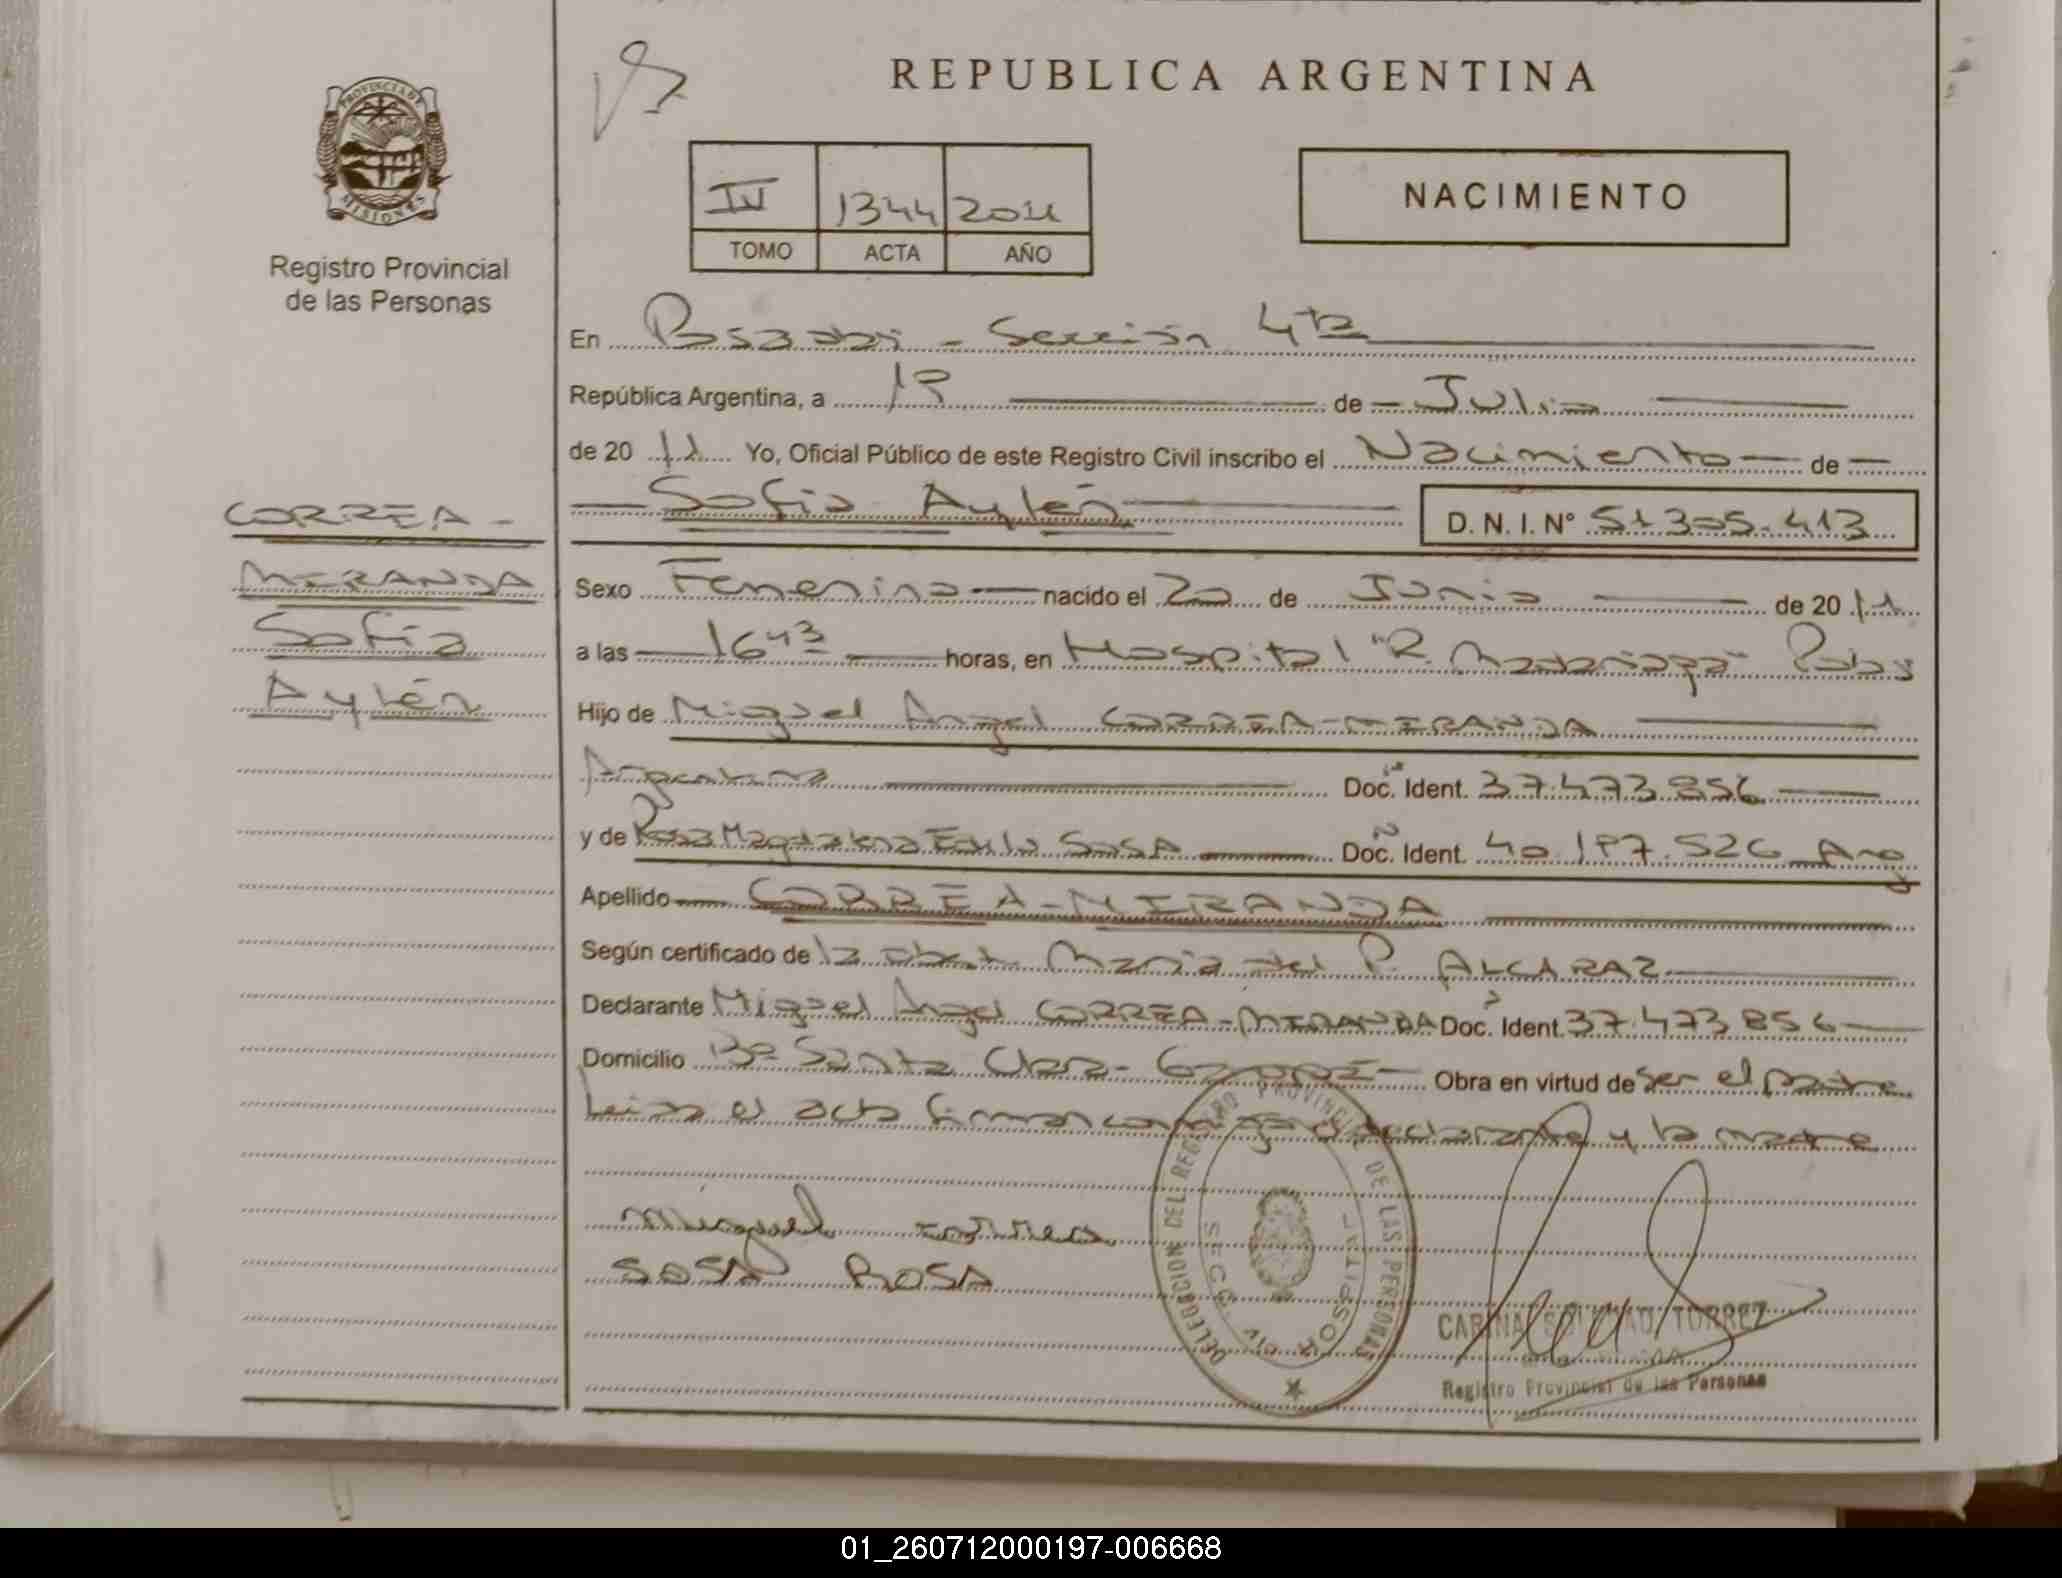 REPUBLICA ARGENTINA
PROVINCIA DE MISIONES
Registro Provincial
de las Personas
IV 1344 2011
TOMO ACTA AÑO
NACIMIENTO
En Posadas - Sección 4ta
República Argentina, a 19 de Julio
de 20 11 Yo, Oficial Público de este Registro Civil inscribo el Nacimiento de
Sofia Aylén D. N. I. N° 51.305.413
CORREA -
MIRANDA
Sofia
Aylén
Sexo Femenino nacido el 20 de Junio de 20 11
a las 16 43 horas, en Hospital "R. Madariaga" Pdas
Hijo de Miguel Angel CORREA-MIRANDA
Argentino Doc. Ident. 37.473.856
y de Rosa Magdalena SOSA Doc. Ident. 40.197.526 Arg
Apellido CORREA-MIRANDA
Según certificado de la obst. Maria del P. ALCARAZ
Declarante Miguel Angel CORREA-MIRANDA Doc. Ident. 37.473.856
Domicilio B° Santa Clara - GARUPÁ Obra en virtud de ser el padre
Leida el acta firman conmigo el declarante y la madre
miguel correa
SOSA ROSA
DELEGACION DEL REGISTRO PROVINCIAL DE LAS PERSONAS
SECC. HOSPITAL
CARINA SOLEDAD TORREZ
Registro Provincial de las Personas
01_260712000197-006668